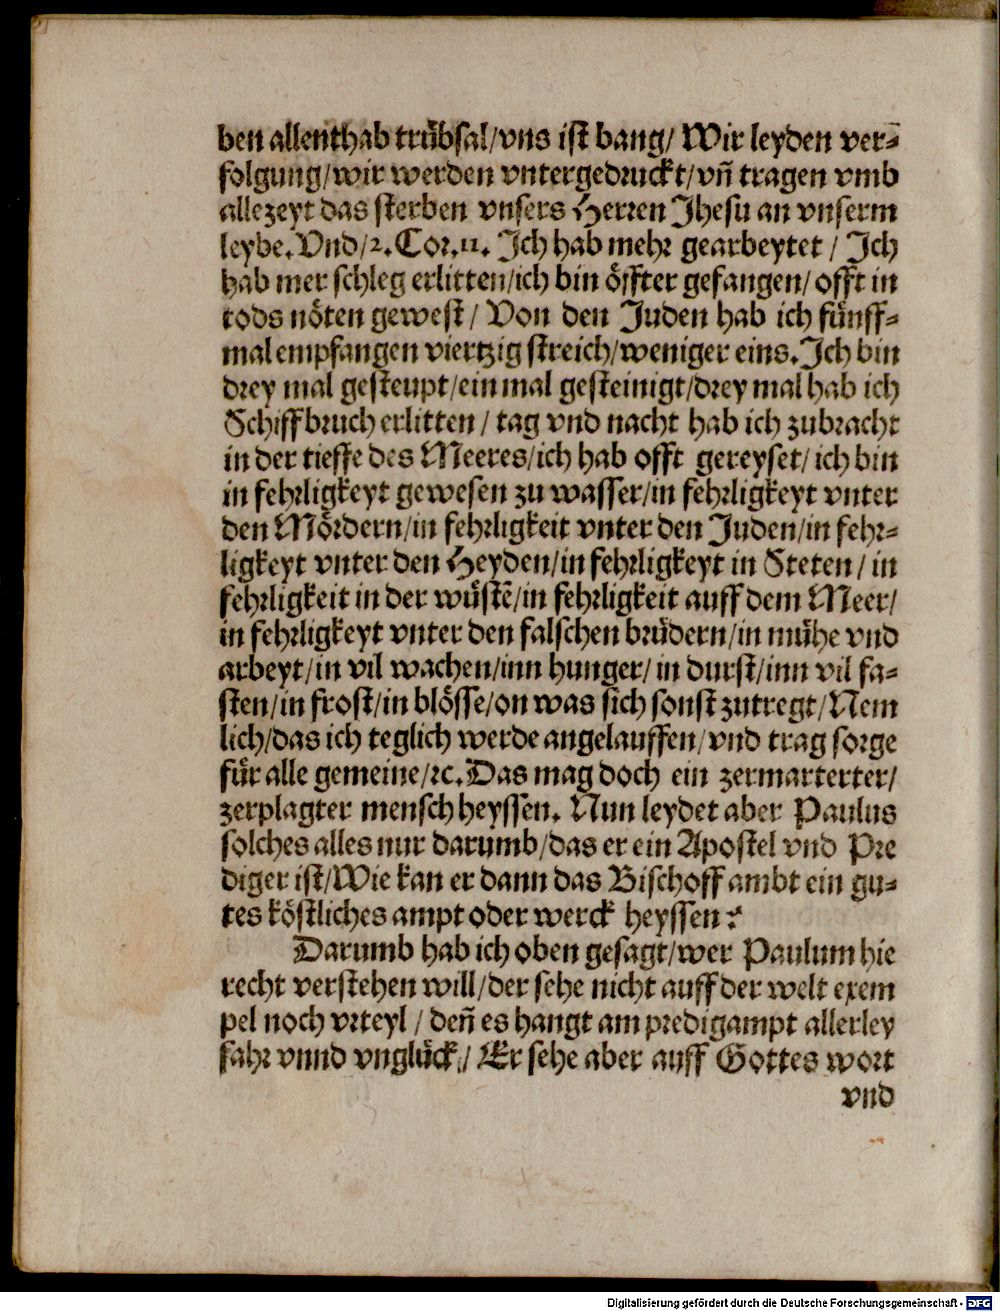 ben allenthab trübsal/vns ist bang/ Wir leyden ver⸗
folgung/wir werden vntergedruckt/vn̄ tragen vmb
allezeyt das sterben vnsers Herren Jhesu an vnserm
leybe. Vnd/2. Cor. 11. Ich hab mehr gearbeytet / Ich
hab mer schleg erlitten/ich bin öffter gefangen/ offt in
tods nöten gewest / Von den Juden hab ich fünff⸗
mal empfangen viertzig streich/weniger eins. Ich bin
drey mal gesteupt/ein mal gesteinigt/drey mal hab ich
Schiffbruch erlitten / tag vnd nacht hab ich zubracht
in der tieffe des Meeres/ich hab offt gereyset/ ich bin
in fehrligkeyt gewesen zu wasser/in fehrligkeyt vnter
den Mördern/in fehrligkeit vnter den Juden/in fehr⸗
ligkeyt vnter den Heyden/in fehrligkeyt in Steten / in
fehrligkeit in der wüstē/in fehrligkeit auff dem Meer/
in fehrligkeyt vnter den falschen brüdern/in mühe vnd
arbeyt/in vil wachen/inn hunger/ in durst/inn vil fa⸗
sten/in frost/in blösse/on was sich sonst zutregt/Nem
lich/das ich teglich werde angelauffen/vnd trag sorge
für alle gemeine/ꝛc. Das mag doch ein zermarterter/
zerplagter mensch heyssen. Nun leydet aber Paulus
solches alles nur darumb/das er ein Apostel vnd Pre
diger ist/Wie kan er dann das Bischoff ambt ein gu⸗
tes köstliches ampt oder werck heyssen?
Darumb hab ich oben gesagt/wer Paulum hie
recht verstehen will/der sehe nicht auff der welt exem
pel noch vrteyl / den̄ es hangt am predigampt allerley
fahr vnnd vnglück/ Er sehe aber auff Gottes wort
vnd
Digitalisierung gefördert durch die Deutsche Forschungsgemeinschaft - DFG